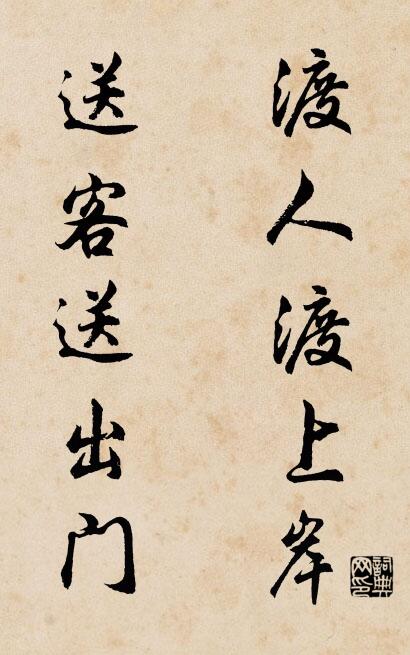 渡人渡上岸
送客送出门
詞典网印